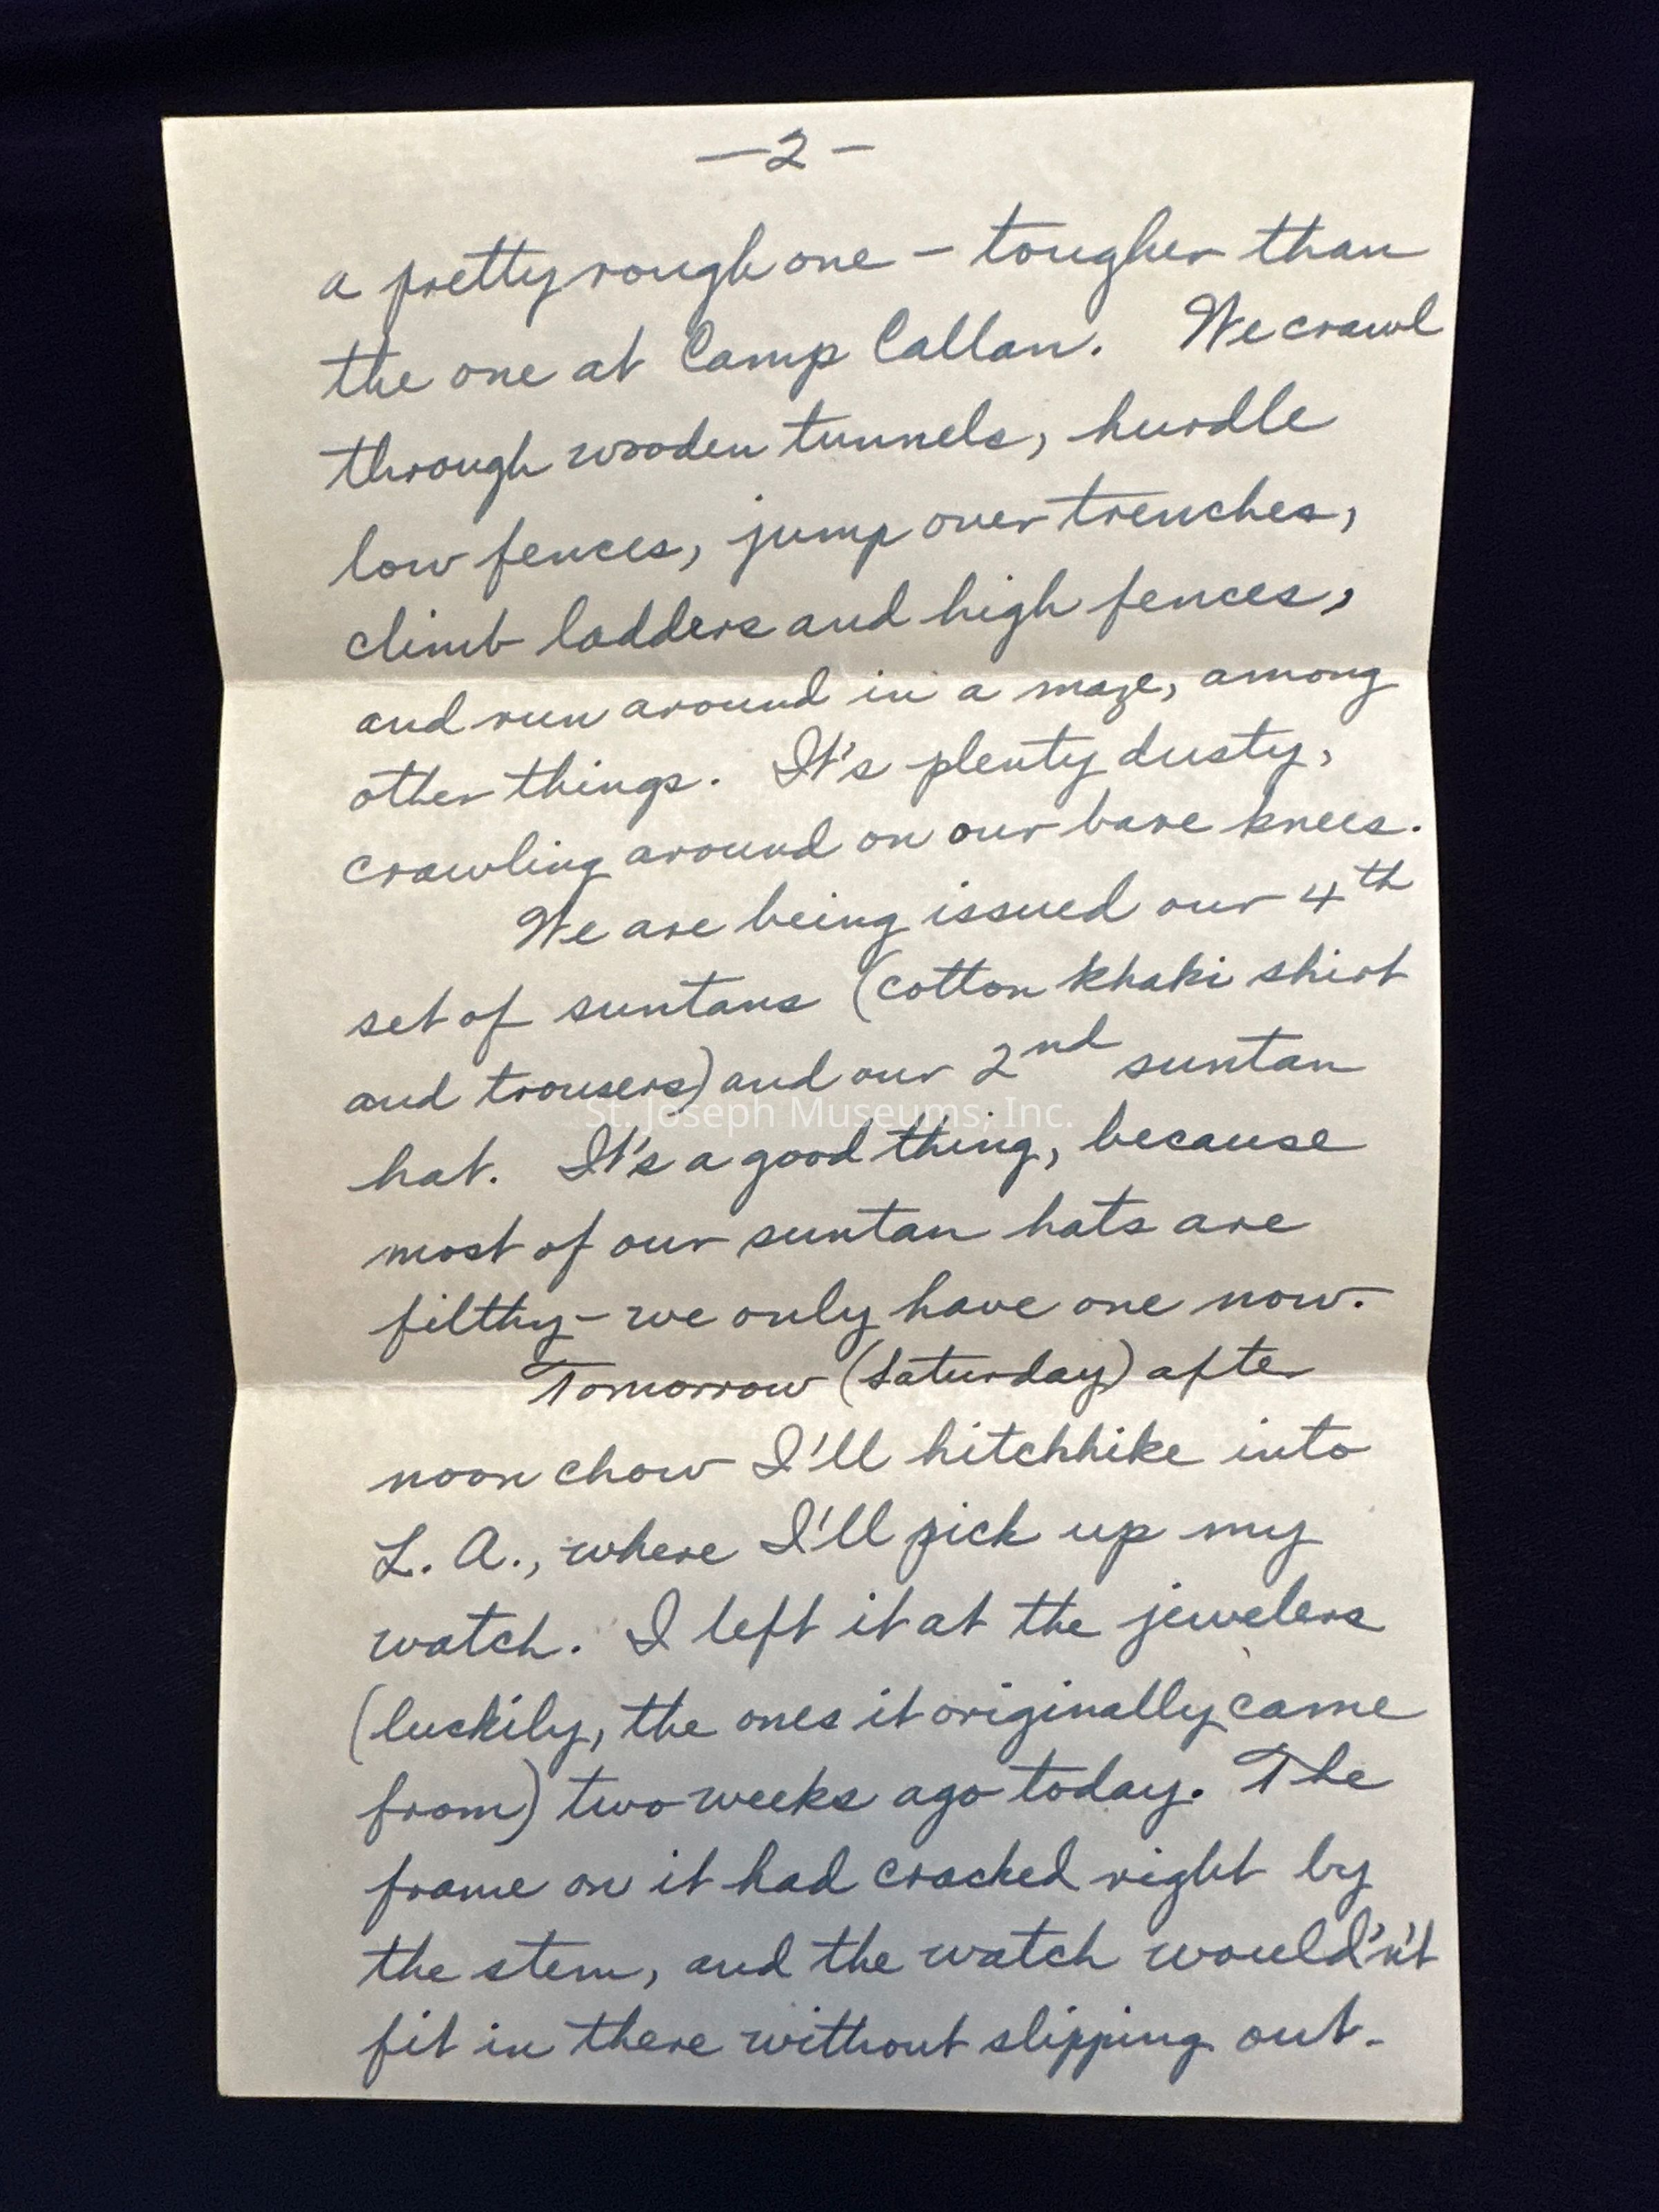 —2—
a pretty rough one — tougher than
the one at Camp Callan. We crawl
through wooden tunnels, hurdle
low fences, jump over trenches,
climb ladders and high fences,
and run around in a maze, among
other things. It's plenty dusty,
crawling around on our bare knees.
We are being issued our 4th
set of suntans (cotton khaki shirt
and trousers) and our 2nd suntan
St. Joseph Museums, Inc.
hat. It's a good thing, because
most of our suntan hats are
filthy — we only have one now.
Tomorrow (Saturday) after
noon chow I'll hitchhike into
L. A., where I'll pick up my
watch. I left it at the jewelers
(luckily, the ones it originally came
from) two weeks ago today. The
frame on it had cracked right by
the stem, and the watch would'n't
fit in there without slipping out.